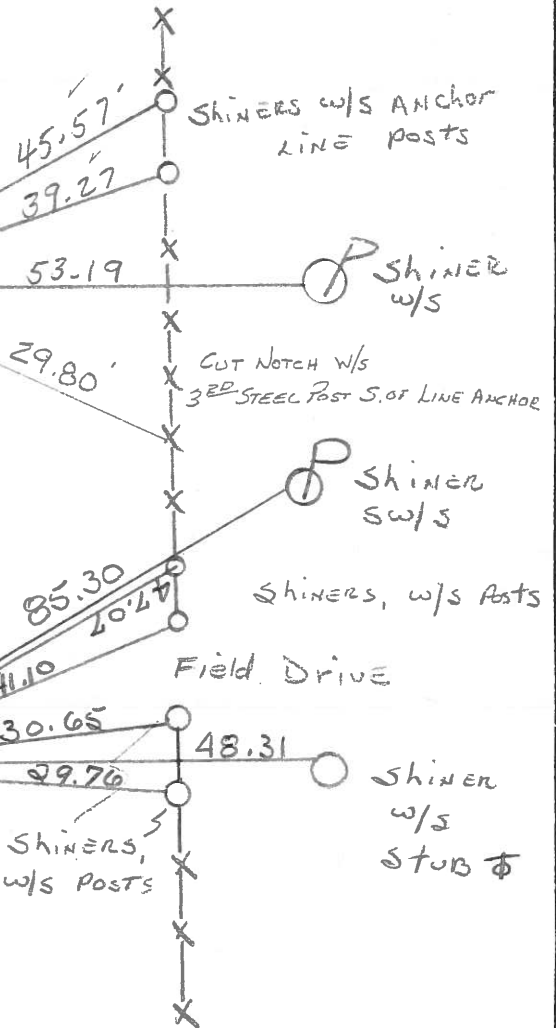 45.57'
SHINERS W/S ANCHOR
LINE POSTS
39.27
53.19
SHINER
W/S
29.80'
CUT NOTCH W/S
3RD STEEL POST S. OF LINE ANCHOR
SHINER
SW/S
85.30
47.07
SHINERS, W/S POSTS
41.10
Field Drive
30.65
48.31
29.76
SHINER
W/S
STUB
SHINERS,
W/S POSTS